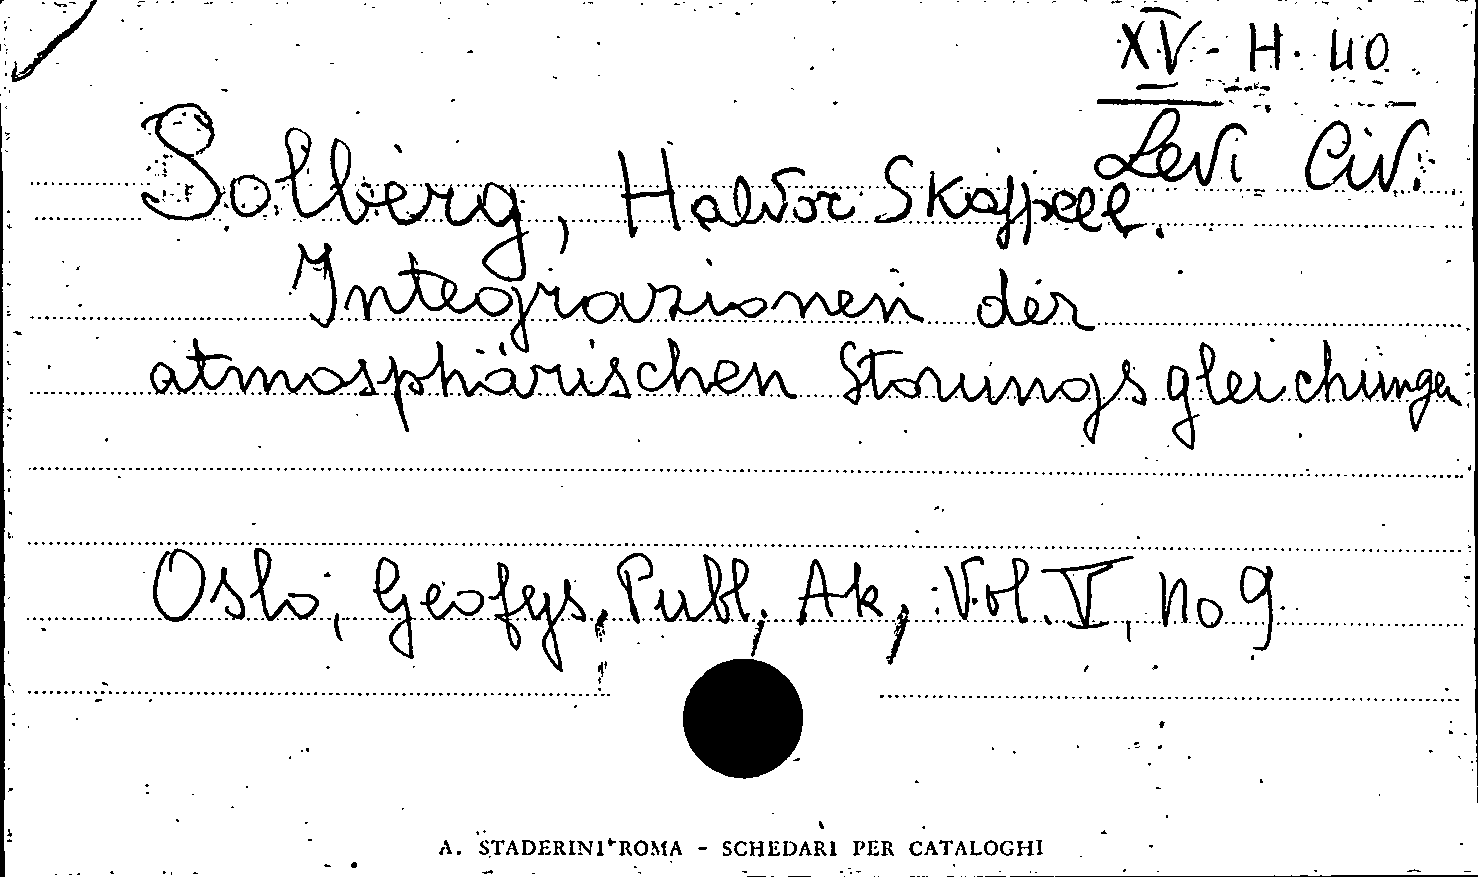 XV - H. 40
Levi Civ.
Solberg, Halvor Skappell.
Integrazionen der
atmosphärischen Storungsgleichungen
Oslo, Geofys, Publ., Ak, Vol. V, no 9
A. STADERINI ROMA - SCHEDARI PER CATALOGHI